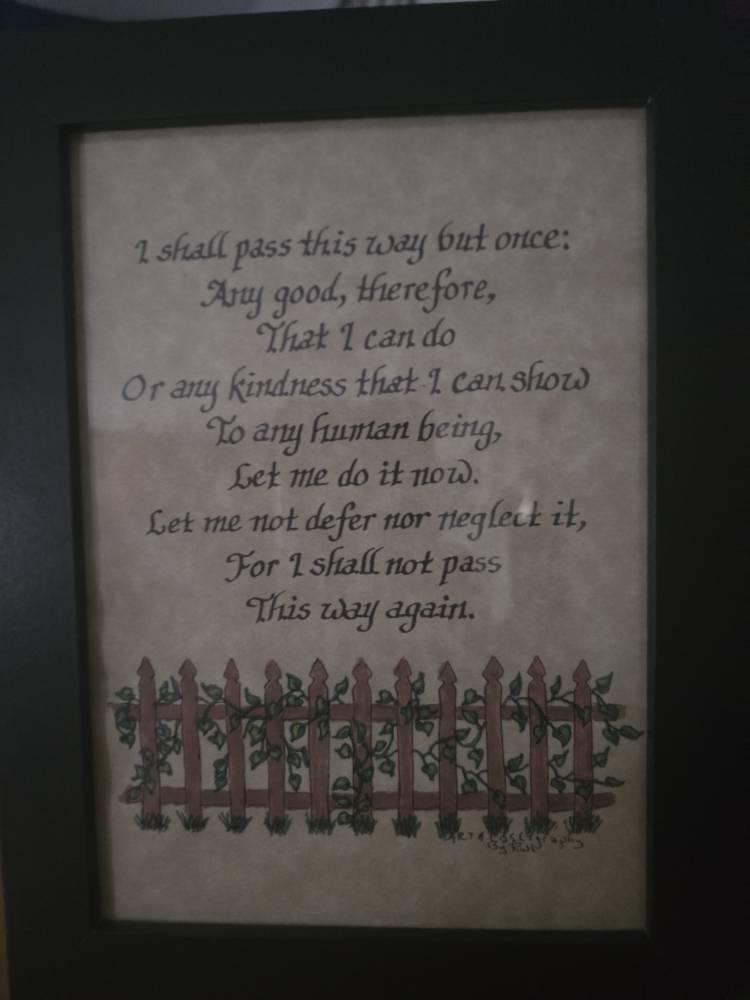 I shall pass this way but once:
Any good, therefore,
That I can do
Or any kindness that I can show
To any human being,
Let me do it now.
Let me not defer nor neglect it,
For I shall not pass
This way again.
By Ruth